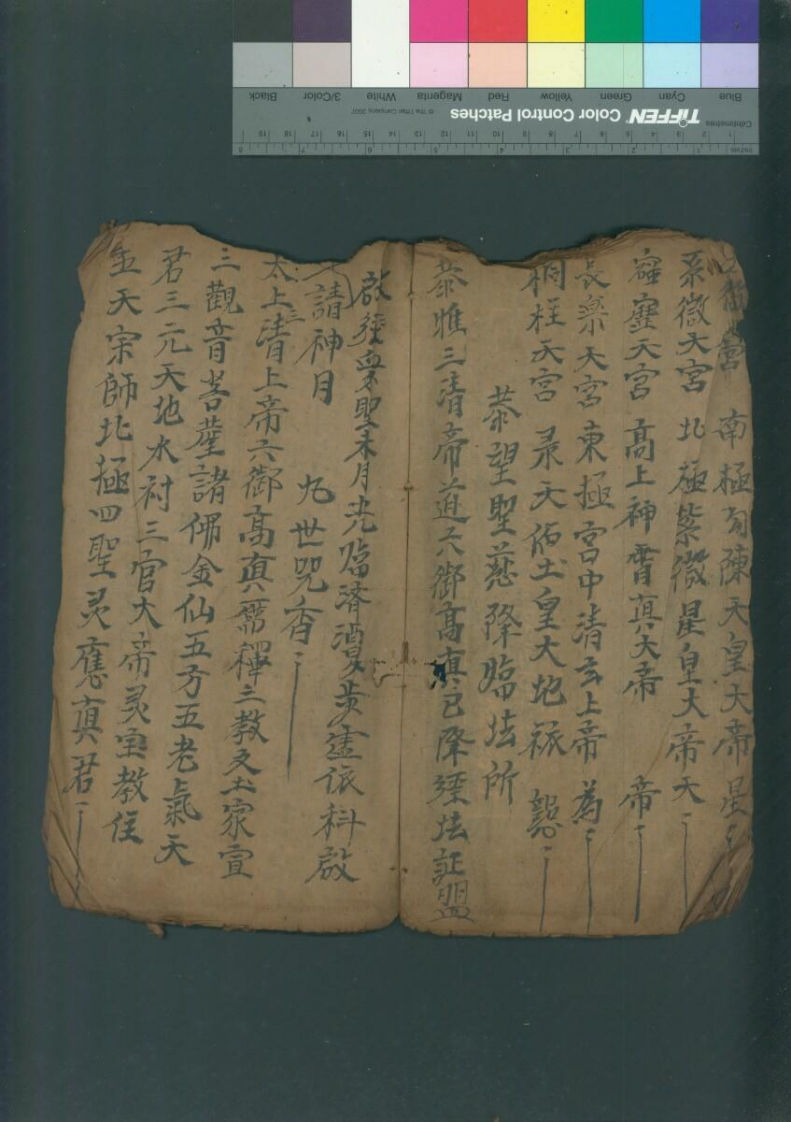 宮 南極勾陳天皇大帝 星
系微天宮 北極紫微星皇大帝 天
天宮 高上神霄真大帝 帝
長楽天宮 東極宫中清玄上帝 為
桐柱天宮 承天后土皇大地祇
恭望聖慈降臨坛所
恭惟三清帝道六御高真已降經坛証盟
啟經 聖未月光臨 酒 步虚依科啟
請神月
九世咒香
太上三清上帝六御高真儒釋之教文土家宣
三觀音菩薩諸佛金仙五方五老上氣天
君三元天地水府三官大帝灵宝教住
玄天宗師北極四聖灵應真君
Centimetres
Inches
TIFFEN Color Control Patches
© The Tiffen Company, 2007
Blue Cyan Green Yellow Red Magenta White 3/Color Black